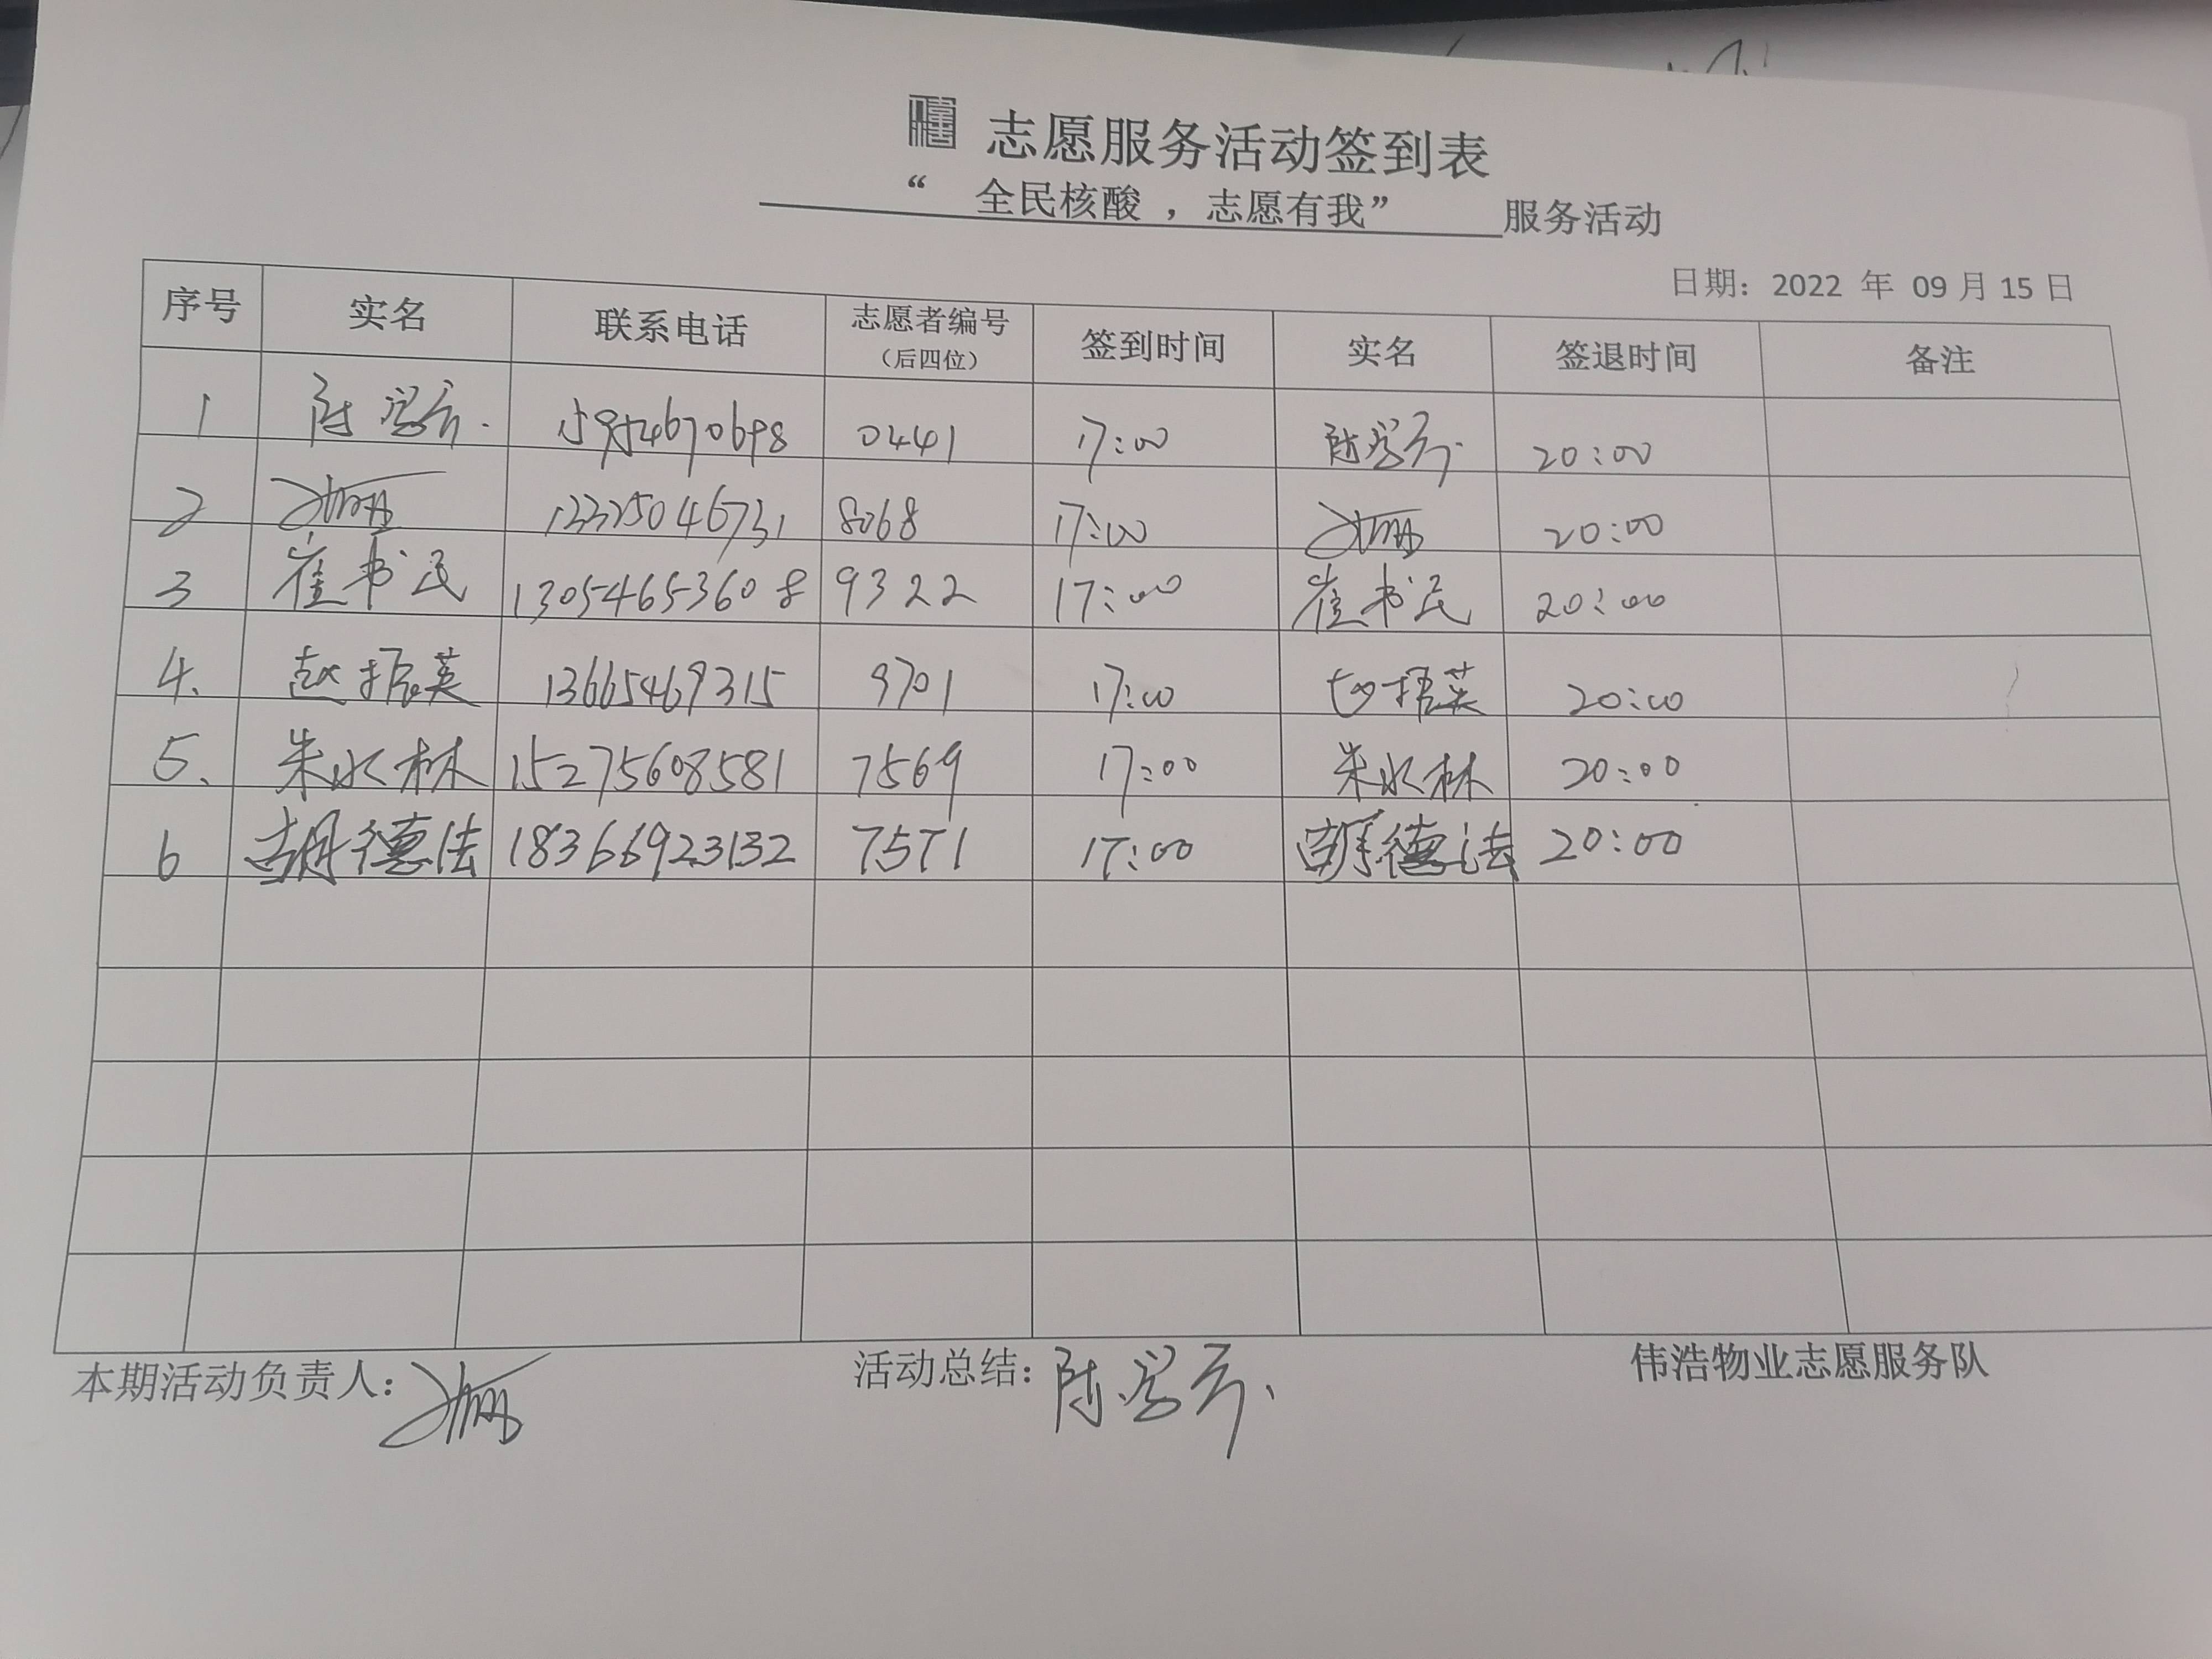 志愿服务活动签到表
“ 全民核酸 ，志愿有我” 服务活动
日期：2022 年 09 月 15 日
序号 实名 联系电话 志愿者编号（后四位） 签到时间 实名 签退时间 备注
1 0441 17:00 20:00
2 8068 17:00 20:00
3 崔书民 13054653608 9322 17:00 崔书民 20:00
4. 赵振英 13665469315 9701 17:00 20:00
5. 朱水林 15275608581 7569 17:00 朱水林 20:00
6 胡德法 18366923132 7571 17:00 胡德法 20:00
本期活动负责人： 活动总结： 伟浩物业志愿服务队